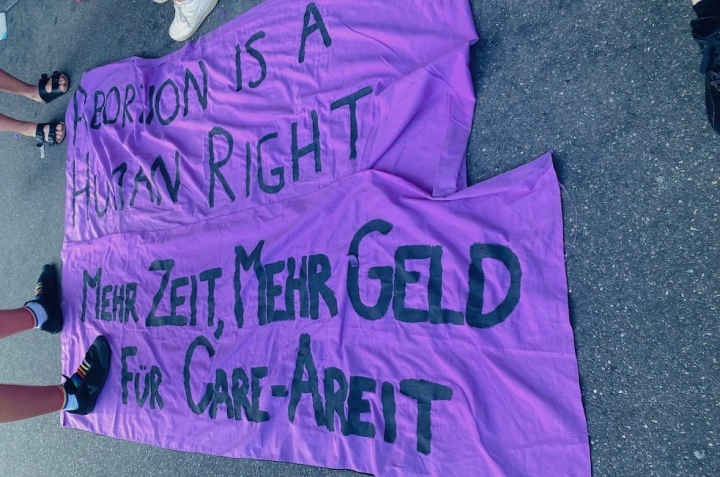 ABORTION IS A
HUMAN RIGHT
MEHR ZEIT, MEHR GELD
FÜR CARE-AREIT